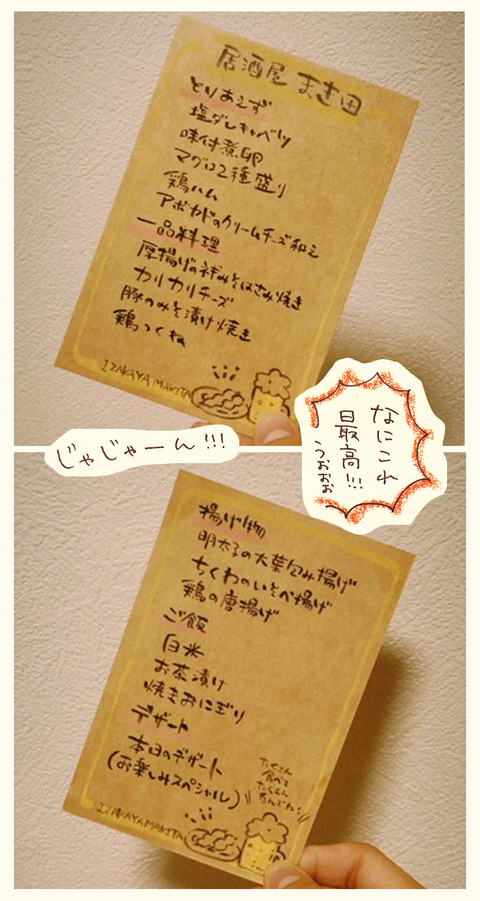 居酒屋 まき田
とりあえず
塩ダレキャベツ
味付煮卵
マグロ2種盛り
鶏ハム
アボカドのクリームチーズ和え
一品料理
厚揚げのネギみそはさみ焼き
カリカリチーズ
豚のみそ漬け焼き
鶏つくね
IZAKAYA MAKITA
じゃじゃーん!!!
なにこれ
最高!!!
うおぉぉ
揚げ物
明太子の大葉包み揚げ
ちくわのいそべ揚げ
鶏の唐揚げ
ご飯
白米
お茶漬け
焼きおにぎり
デザート
本日のデザート
(お楽しみスペシャル)
たくさん
食べて
たくさん
のんでね!
IZAKAYA MAKITA